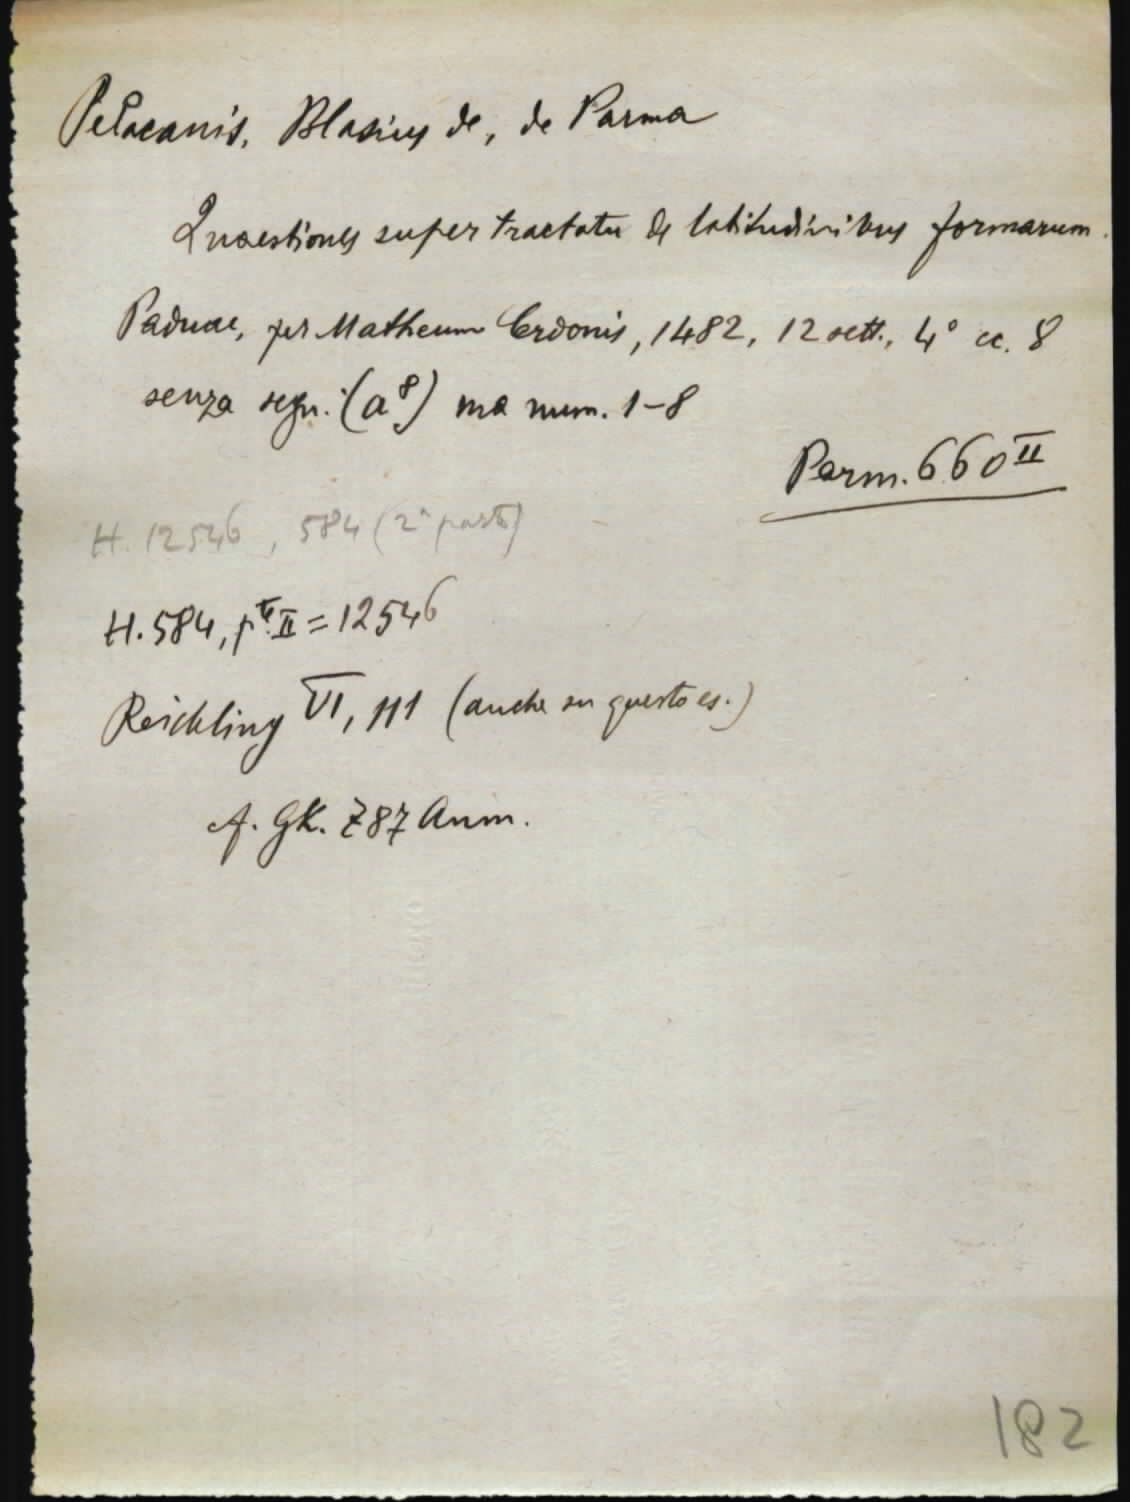 Pelacanis, Blasius de, de Parma
Quaestiones super tractatu de latitudinibus formarum.
Paduae, per Matheum Cerdonis, 1482, 12 sett., 4° cc. 8
senza segn. (a⁸) ma num. 1-8
Parm. 660 II
H. 12546, 584 (2ª parte)
H. 584, pte. II = 12546
Reichling VI, 111 (anche su questo es.)
Cf. GK. 787 Anm.
182